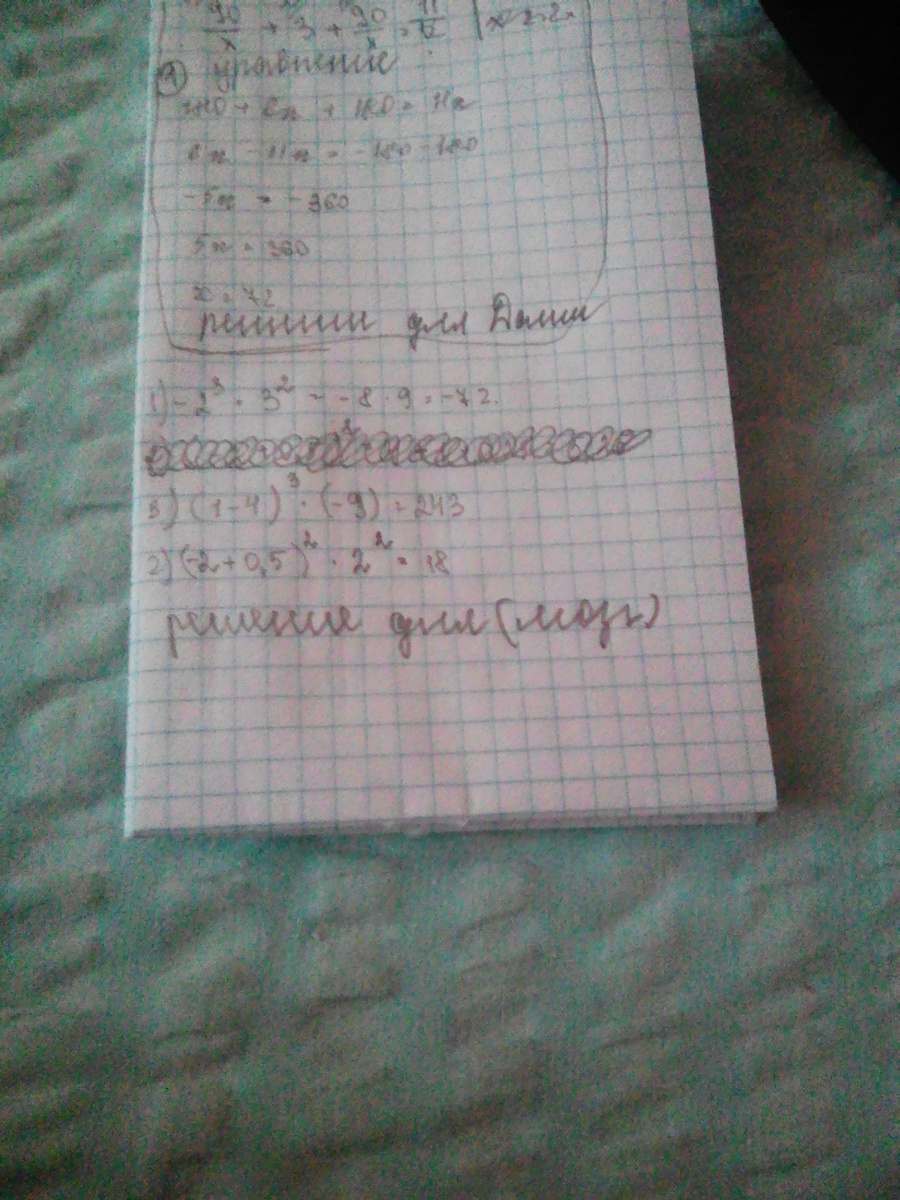 90/x + 3 + 90/x = 11/12
2) уравнение
180 + 6x + 180 = 11x
6x - 11x = -180 - 180
-5x = -360
5x = 360
x = 72
решение для
1) -2³ · 3² = -8 · 9 = -72.
3) (1-4)³ · (-9) = 243
2) (-2+0,5)² · 2² = 18
решение для (мозг)